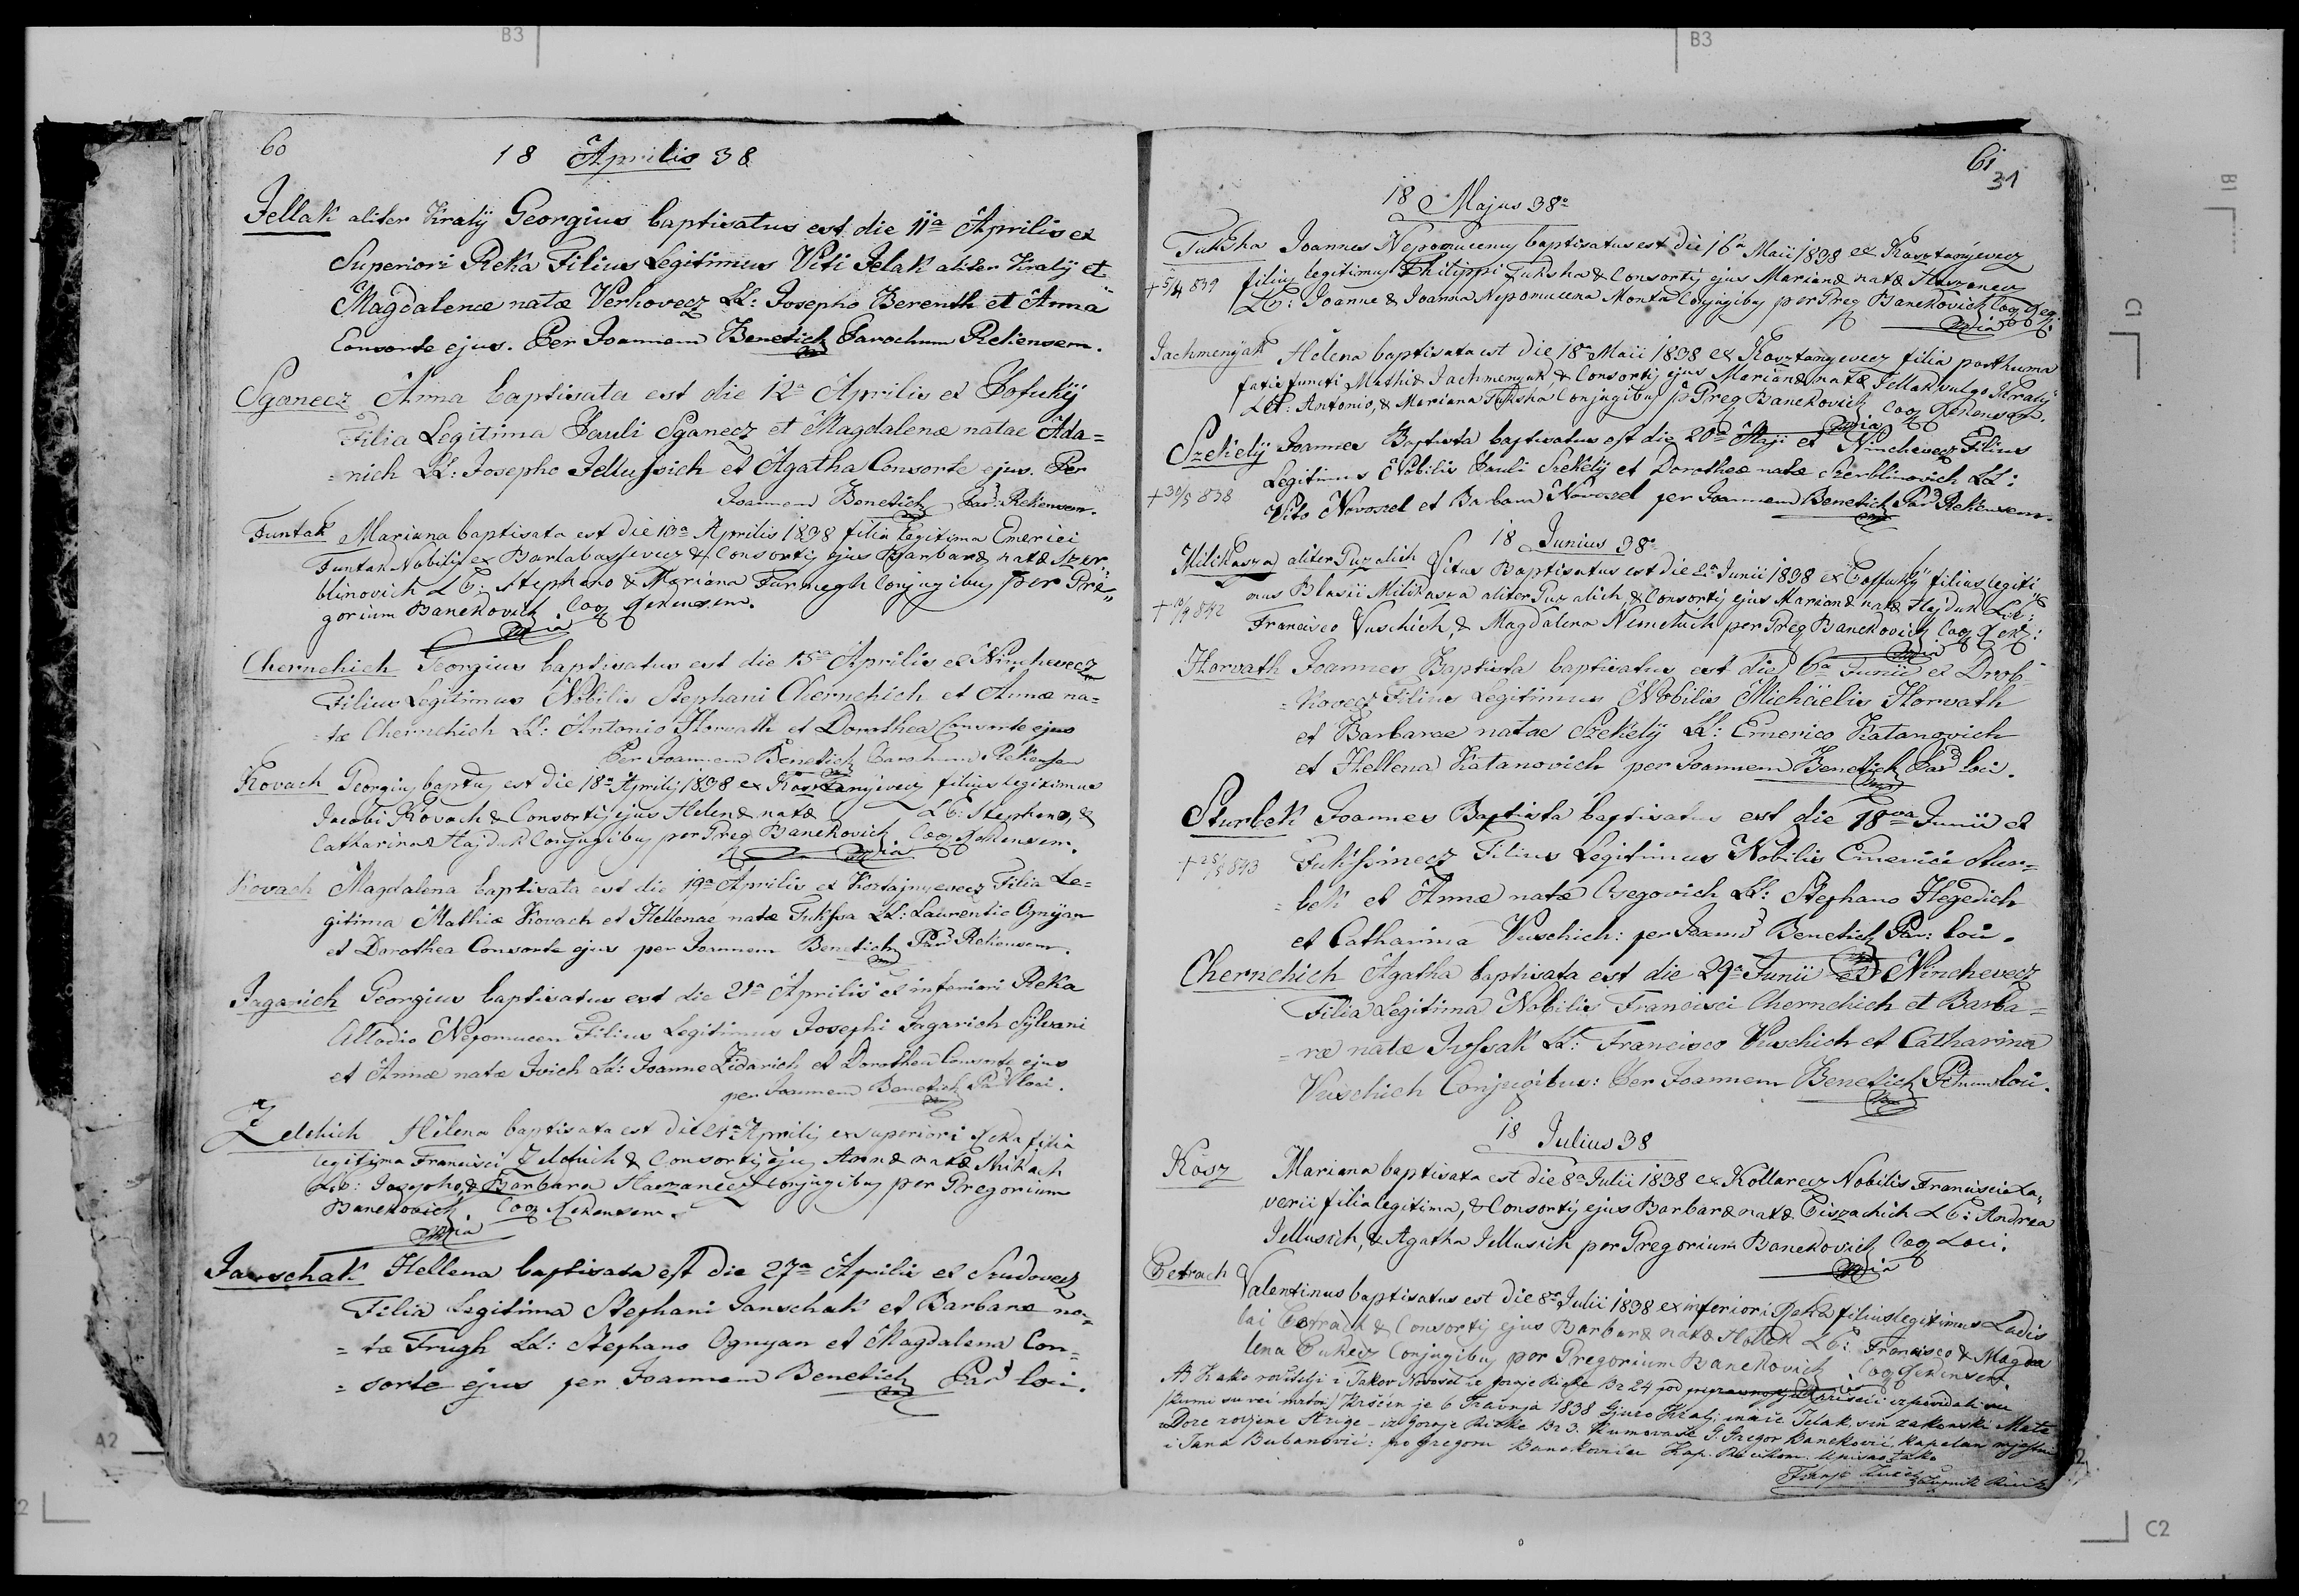 B3
B3
B1
C1
A2
C2
60
18 Aprilis 38
Jellak aliter Kralÿ Georgius baptisatus est die 11a Aprilis ex
Superiori Reka Filius Legitimus Viti Jelak aliter Kralÿ et
Magdalenæ natæ Verhovecz LL: Josepho Berenth et Anna
Consorte ejus. Per Joannem Benetich Parochum Rekensem.
Sganecz Anna baptisata est die 12a Aprilis ex
Filia Legitima Pauli Sganecz et Magdalenæ natae Ada=
=nich LL: Josepho Jellussich et Agatha Consorte ejus. Per
Joannem Benetich Par: Rekensem.
Funtak Mariana baptisata est die 13a Aprilis 1838 filia legitima Emerici
Funtak Nobilis ex & Consortis ejus Barbaræ natæ Szer„
blinovich LP: Stephano & Mariana Furmegh Conjugibus per Gre„
gorium Banekovich Coop Rekensem.
mpria
Chernchich Georgius baptisatus est die 15a Aprilis ex Ninchevecz
Filius Legitimus Nobilis Stephani Chernchich et Annæ na=
=tæ Chernchich LL: Antonio Horvath et Dorothea Consorte ejus
Per Joannem Benetich Parochum Rekensem
Kovach Georgius baptus est die 18a Aprilis 1838 ex Kosztanyevecz filius legitimus
Jacobi Kovach & Consortis ejus Helenæ natæ LP: Stephano, &
Catharina Hajduk Conjugibus per Greg Banekovich Coop Rekensem.
mpria
Kovach Magdalena baptisata est die 19a Aprilis ex Kostajnyevecz Filia Le=
gitima Mathiæ Kovach et Hellenae natæ Tukssa LL: Laurentio Ognÿan
et Dorothea Consorte ejus per Joannem Benetich Par Rekensem.
Jagarich Georgius baptisatus est die 21a Aprilis ex inferiori Reka
Allodio Nepomucen Filius Legitimus Josephi Jagarich Sÿlvani
et Annæ natæ Ivich LL: Joanne Zidarich et Dorothea Consorte ejus
per Joannem Benetich Par loci.
Zelchich Helena baptisata est die 24a Aprilis ex superiori Reka filia
legitima Francisci Zelchich & Consortis ejus Annæ natæ Mikach
LP: Josepho, & Barbara Haszanecz Conjugibus per Gregorium
Banekovich. Coop Rekensem.
mpria
Janschak Hellena baptisata est die 27a Aprilis ex Szudovecz
Filia Legitima Stephani Janschak et Barbaræ na=
=tæ Frugh LL: Stephano Ognyan et Magdalena Con=
=sorte ejus per Joannem Benetich Par loci.
61
31
18 Majus 38
Tuksha Joannes Nepomucenus baptisatus est die 16a Maii 1838 ex Kosztanyevecz
+5/4 839 filius legitimus Philippi Tuksha & Consortis ejus Marianæ natæ Haszanecz
LP: Joanne & Joanna Nepomucena Monta Conjugibus per Greg Banekovich Coop Rek:
mpria
Jachmenyak Helena baptisata est die 18a Maii 1838 ex Kosztanyevecz filia posthuma
fatis functi Mathiæ Jachmenyak & Consortis ejus Marianæ natæ Jellak vulgo Kralÿ
LP: Antonio, & Mariana Tuksha Conjugibus p Greg Banekovich Coop Rekensem.
mpria
Szekelÿ Joannes Baptista baptisatus est die 20a Maji ex Ninchevecz Filius
Legitimus Nobilis Pauli Szekelÿ et Dorotheæ natæ Szerblinovich LL:
+31/5 838 Vito Novoszel et Barbara Novoszel per Joannem Benetich Par Rekensem.
18 Junius 38
Milikasza aliter Puzalich Vitus Baptisatus est die 2a Junii 1838 ex filius legiti„
mus Blasii Milikasza aliter Puzalich, & Consortis ejus Marianæ natæ Hajduk LP:
+ 10/9 842 Francisco Vuschich, & Magdalena Nemchich per Greg Banekovich Coop Rek:
mpria
Horvath Joannes Baptista baptisatus est die 6a Junii ex Drob=
=kovecz Filius Legitimus Nobilis Michäelis Horvath
et Barbarae natae Szekelÿ LL: Emerico Katanovich
et Hellena Katanovich per Joannem Benetich Par loci.
Sturbek Joannes Baptista baptisatus est die 18va Junii ex
+ 25/8 843 Filius Legitimus Nobilis Emerici Stur=
=bek et Annæ natæ Csegovich LL: Stephano Hegedich
et Catharina Vuschich: per Joannem Benetich Par: loci.
Chernchich Agatha baptisata est die 29a Junii ex Ninchevecz
Filia Legitima Nobilis Francisci Chernchich et Barba=
=ræ natæ Jussak LL: Francisco Vuschich et Catharina
Vuschich Conjugibus: Per Joannem Benetich P loci.
18 Julius 38
Kosz Mariana baptisata est die 8a Julii 1838 ex Kollarecz Nobilis Francisci Xa„
verii filia legitima, & Consortis ejus Barbaræ natæ Piszachich LP: Andrea
Jellusich, & Agatha Jellusich per Gregorium Banekovich Coop Loci.
mpria
Petrach Valentinus baptisatus est die 8a Julii 1838 ex inferiori Reka filius legitimus Ladis
lai Petrach & Consortis ejus Barbaræ natæ Hallek LP: Francisco & Magda
lena Pukecz Conjugibus per Gregorium Banekovich Coop Rekensem.
A Kako roditelji i Jakov Novosel iz gornje Rieke Br 24 pod prisegom izpovidali su
/kumi su već mrtvi/ Kršćen je 6 Travnja 1838 Gjuro Kralj inače Jelak, sin zakonski Mata
i Dore rodjene Strige – iz Gornje Rieke Br 3. Kumovaše G. Gregor Baneković, kapelan mjestni
i Jana Bubanović: po Gregoru Banekoviću Kap. Riečkom. Upisao tako
Franjo župnik